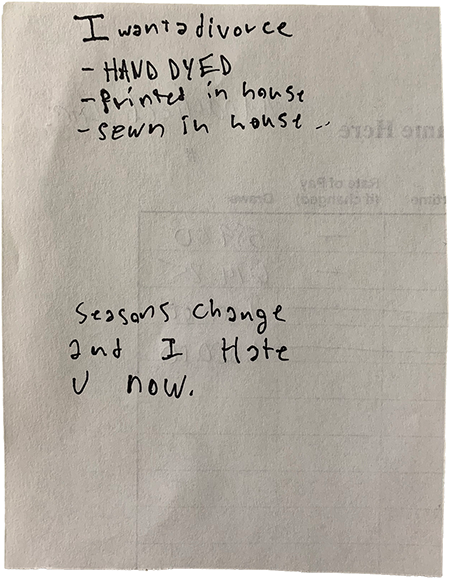 I want a divorce
- HAND DYED
- Printed in house
- SEWN in house ..
Seasons change
and I Hate
U now.
ame Here
Rate of Pay
(if changed)
Draws